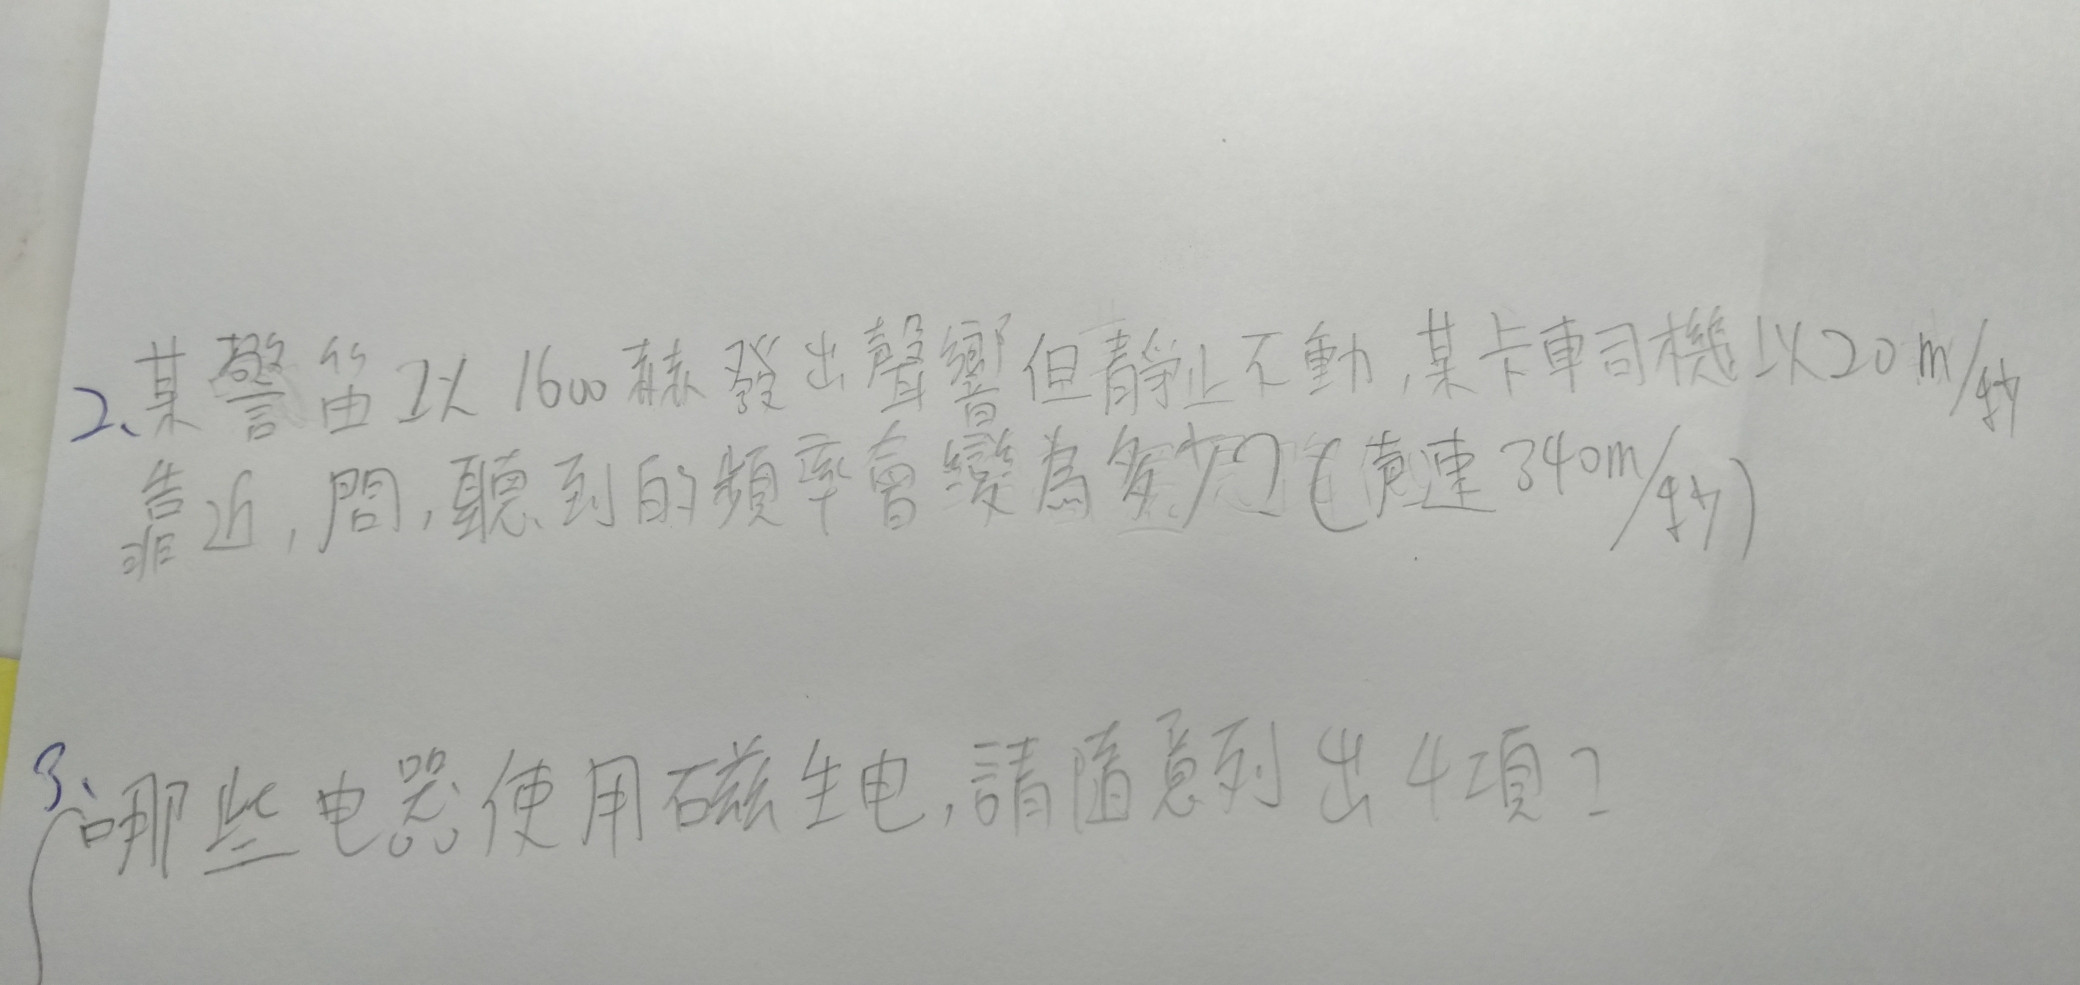 2、某警笛以1600赫發出聲響但靜止不動,某卡車司機以20m/秒
靠近,問,聽到的頻率會變為多少?(音速340m/秒)
3、哪些电器使用磁生电,請隨意列出4項?